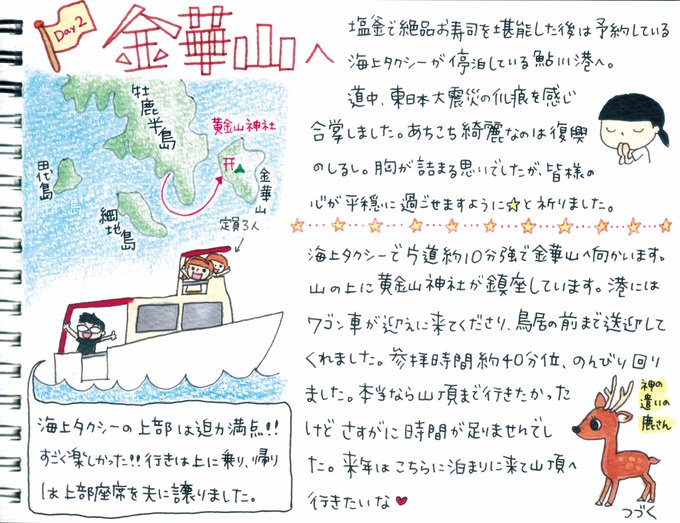 Day 2
金華山へ
塩釜で絶品お寿司を堪能した後は予約している
海上タクシーが停泊している鮎川港へ。
道中、東日本大震災の爪痕を感じ
合掌しました。あちこち綺麗なのは復興
のしるし。胸が詰まる思いでしたが、皆様の
心が平穏に過ごせますように☆と祈りました。
牡鹿半島
黄金山神社
金華山
田代島
網地島
定員3人
海上タクシーで片道約10分強で金華山へ向かいます。
山の上に黄金山神社が鎮座しています。港には
ワゴン車が迎えに来てくださり、鳥居の前まで送迎して
くれました。参拝時間約40分位、のんびり回り
ました。本当なら山頂まで行きたかった
けどさすがに時間が足りませんでし
た。来年はこちらに泊まりに来て山頂へ
行きたいな♥
神の
遣いの
鹿さん
海上タクシーの上部は迫力満点!!
すごく楽しかった!!行きは上に乗り、帰り
は上部座席を夫に譲りました。
つづく